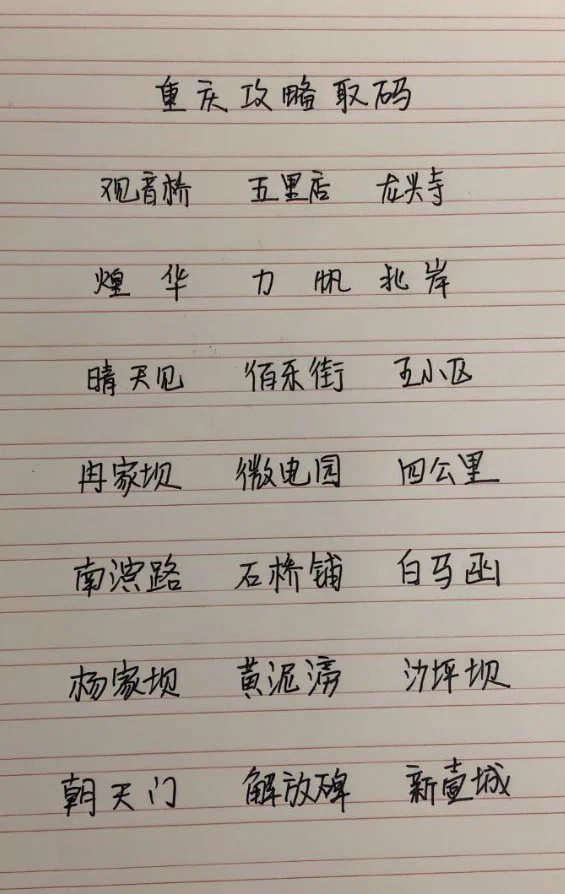 重庆攻略取码
观音桥 五里店 龙兴寺
煌华 力帆 北岸
晴天见 佰乐街 五小区
冉家坝 微电园 四公里
南滨路 石桥铺 白马凼
杨家坝 黄泥滂 沙坪坝
朝天门 解放碑 新壹城